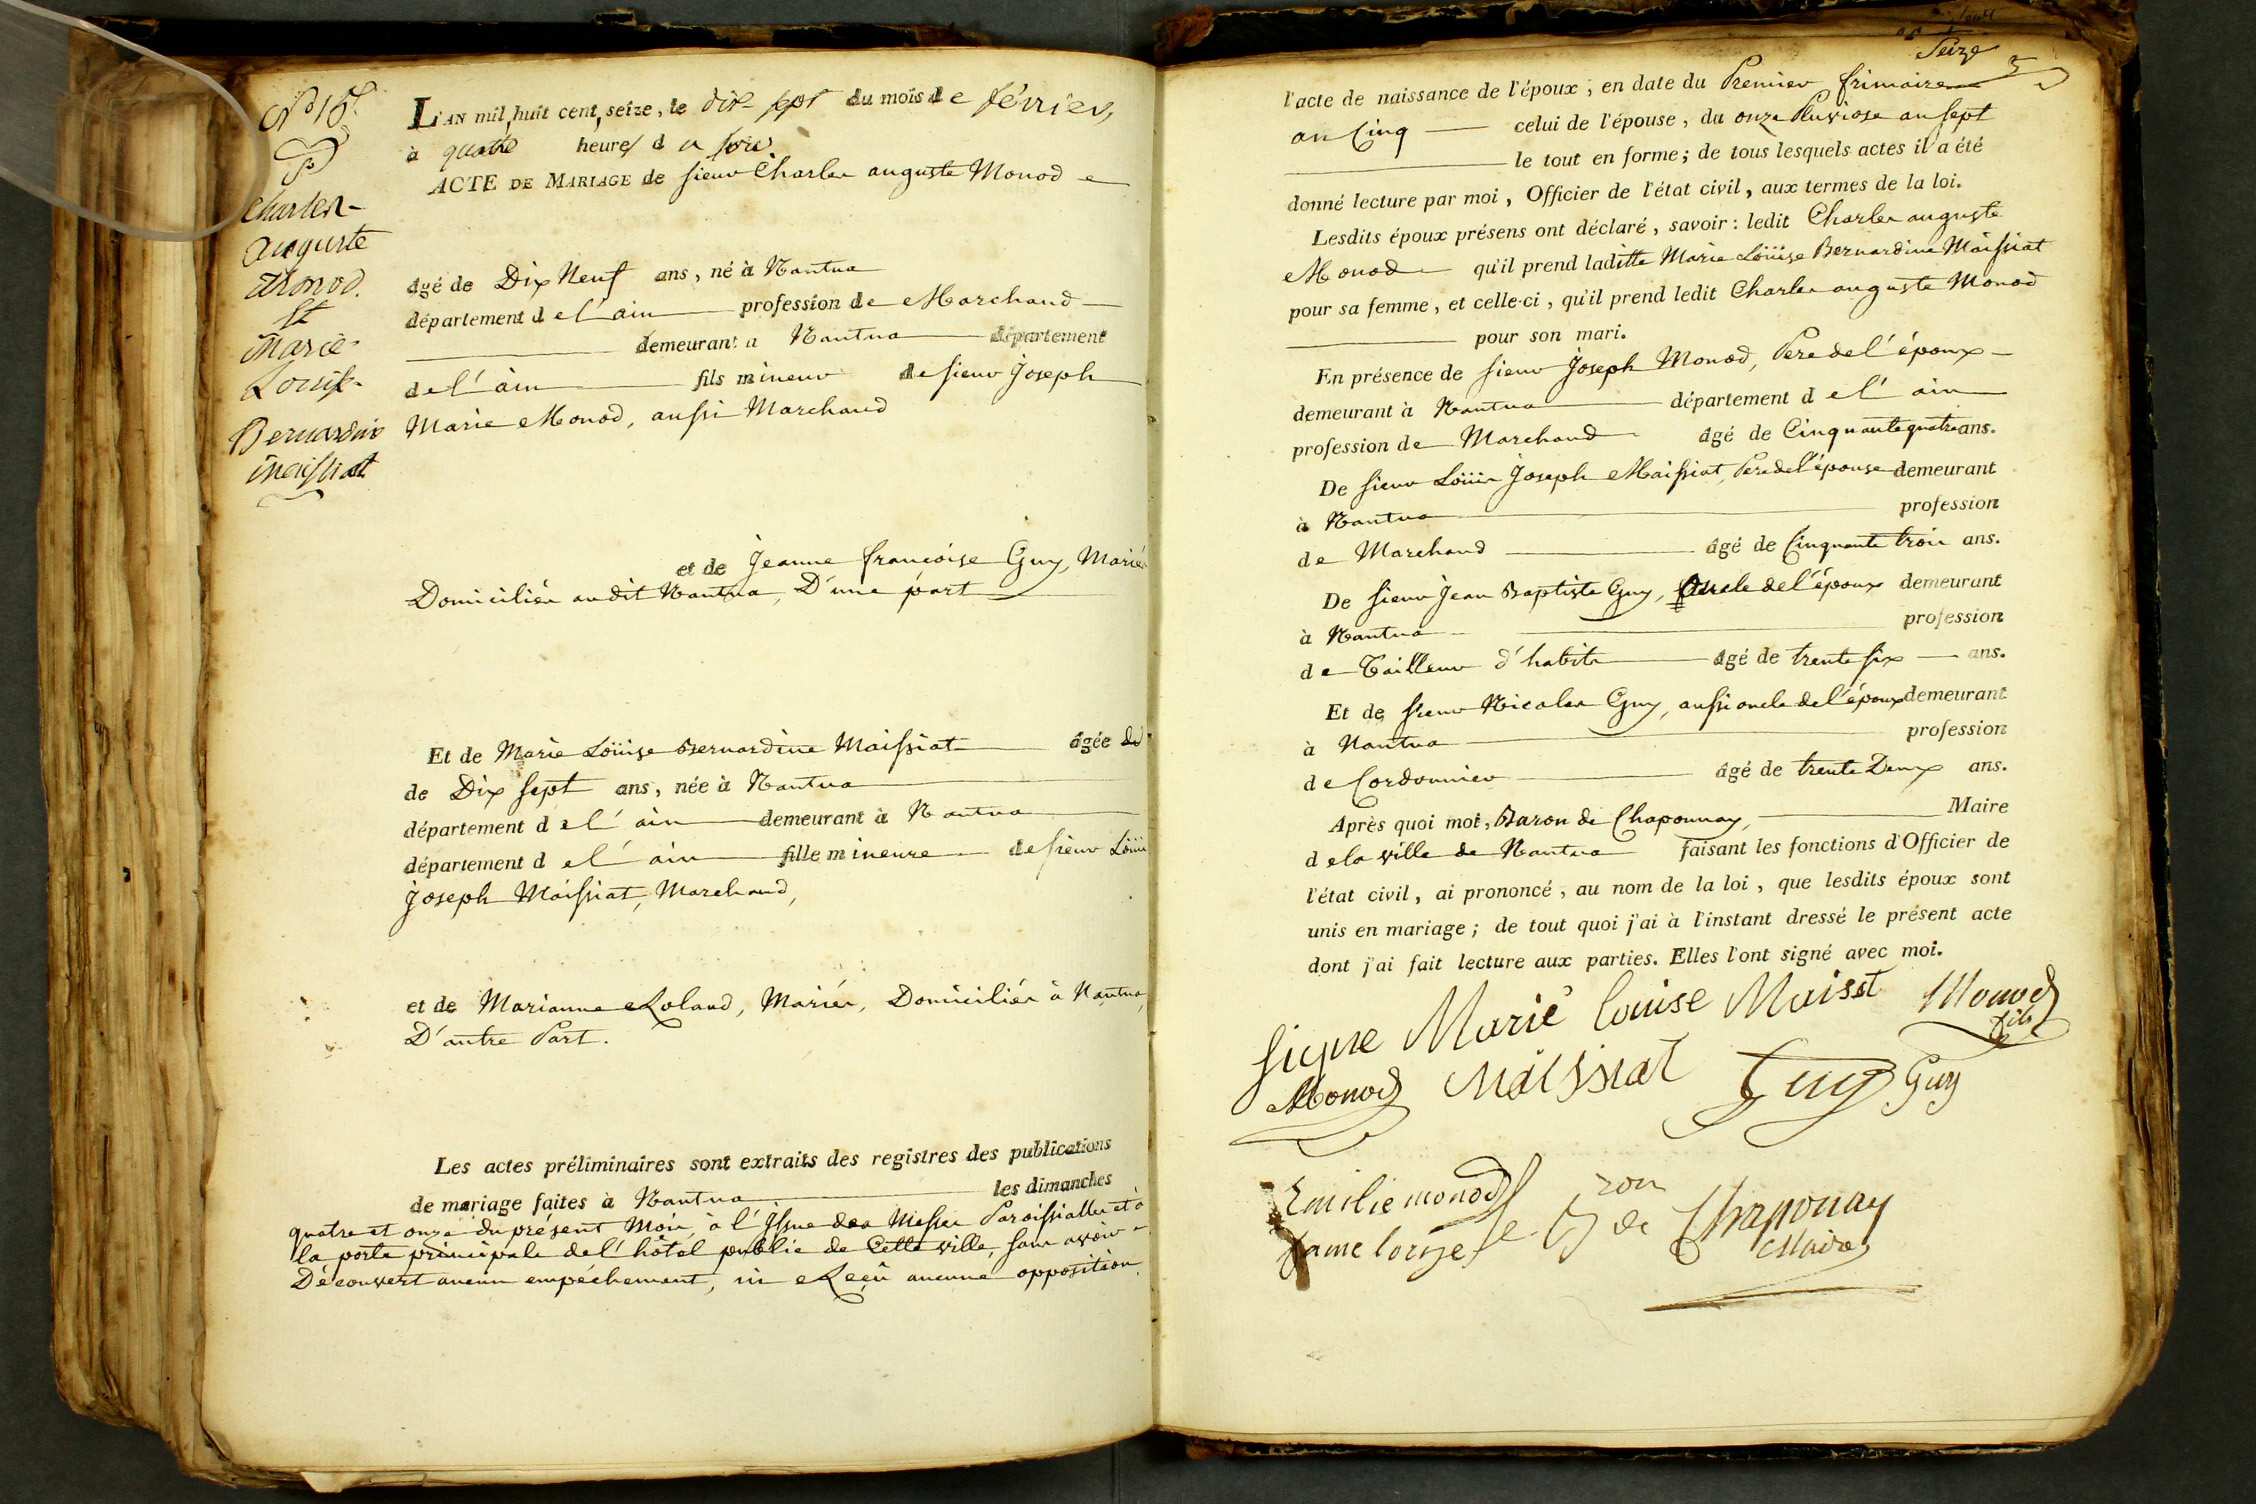 N° 15
Charles
auguste
Monod.
et
Marie
Louise
Bernardine
Maissiat
L'AN mil huit cent seize, le dix sept du mois de février,
à quatre heures du soir
ACTE DE MARIAGE de sieur Charles auguste Monod
âgé de Dix Neuf ans, né à Nantua
département de l'ain profession de Marchand
demeurant à Nantua département
de l'ain fils mineur de sieur Joseph
Marie Monod, aussi Marchand
et de Jeanne françoise Guy, Mariés
Domiciliés audit Nantua, D'une part
Et de Marie Loüise Bernardine Maissiat âgée
de Dix sept ans, née à Nantua
département de l'ain demeurant à Nantua
département de l'ain fille mineure de sieur Loüis
Joseph Maissiat, Marchand,
et de Marianne Roland, Mariés, Domiciliés à Nantua,
D'autre Part.
Les actes préliminaires sont extraits des registres des publications
de mariage faites à Nantua les dimanches
quatre et onze du présent Mois, à l'Issue des Messes Paroissialles et à
la porte principale de l'hôtel public de Cette ville, sans avoir
Découvert aucun empêchement, ni Reçû aucune opposition
Seize
l'acte de naissance de l'époux ; en date du Premier frimaire
an Cinq celui de l'épouse, du onze Pluviose an sept
le tout en forme ; de tous lesquels actes il a été
donné lecture par moi, Officier de l'état civil, aux termes de la loi.
Lesdits époux présens ont déclaré, savoir : ledit Charles auguste
Monod qu'il prend laditte Marie Loüise Bernardine Maissiat
pour sa femme, et celle-ci, qu'il prend ledit Charles auguste Monod
pour son mari.
En présence de sieur Joseph Monod, Pere de l'époux
demeurant à Nantua département de l'ain
profession de Marchand âgé de Cinquante quatre ans.
De sieur Loüis Joseph Maissiat, Pere de l'épouse demeurant
à Nantua profession
de Marchand âgé de Cinquante trois ans.
De sieur Jean Baptiste Guy, Oncle de l'époux demeurant
à Nantua profession
de Tailleur d'habits âgé de trente six ans.
Et de sieur Nicolas Guy, aussi oncle de l'époux demeurant
à Nantua profession
de Cordonnier âgé de trente Deux ans.
Après quoi moi, Baron de Chaponnay, Maire
de la ville de Nantua faisant les fonctions d'Officier de
l'état civil, ai prononcé, au nom de la loi, que lesdits époux sont
unis en mariage ; de tout quoi j'ai à l'instant dressé le présent acte
dont j'ai fait lecture aux parties. Elles l'ont signé avec moi.
signe Marie louise Maissat Monod fils
Monod Maissiat Guy Guy
Emilie monod le Bron de Chaponay
Maire